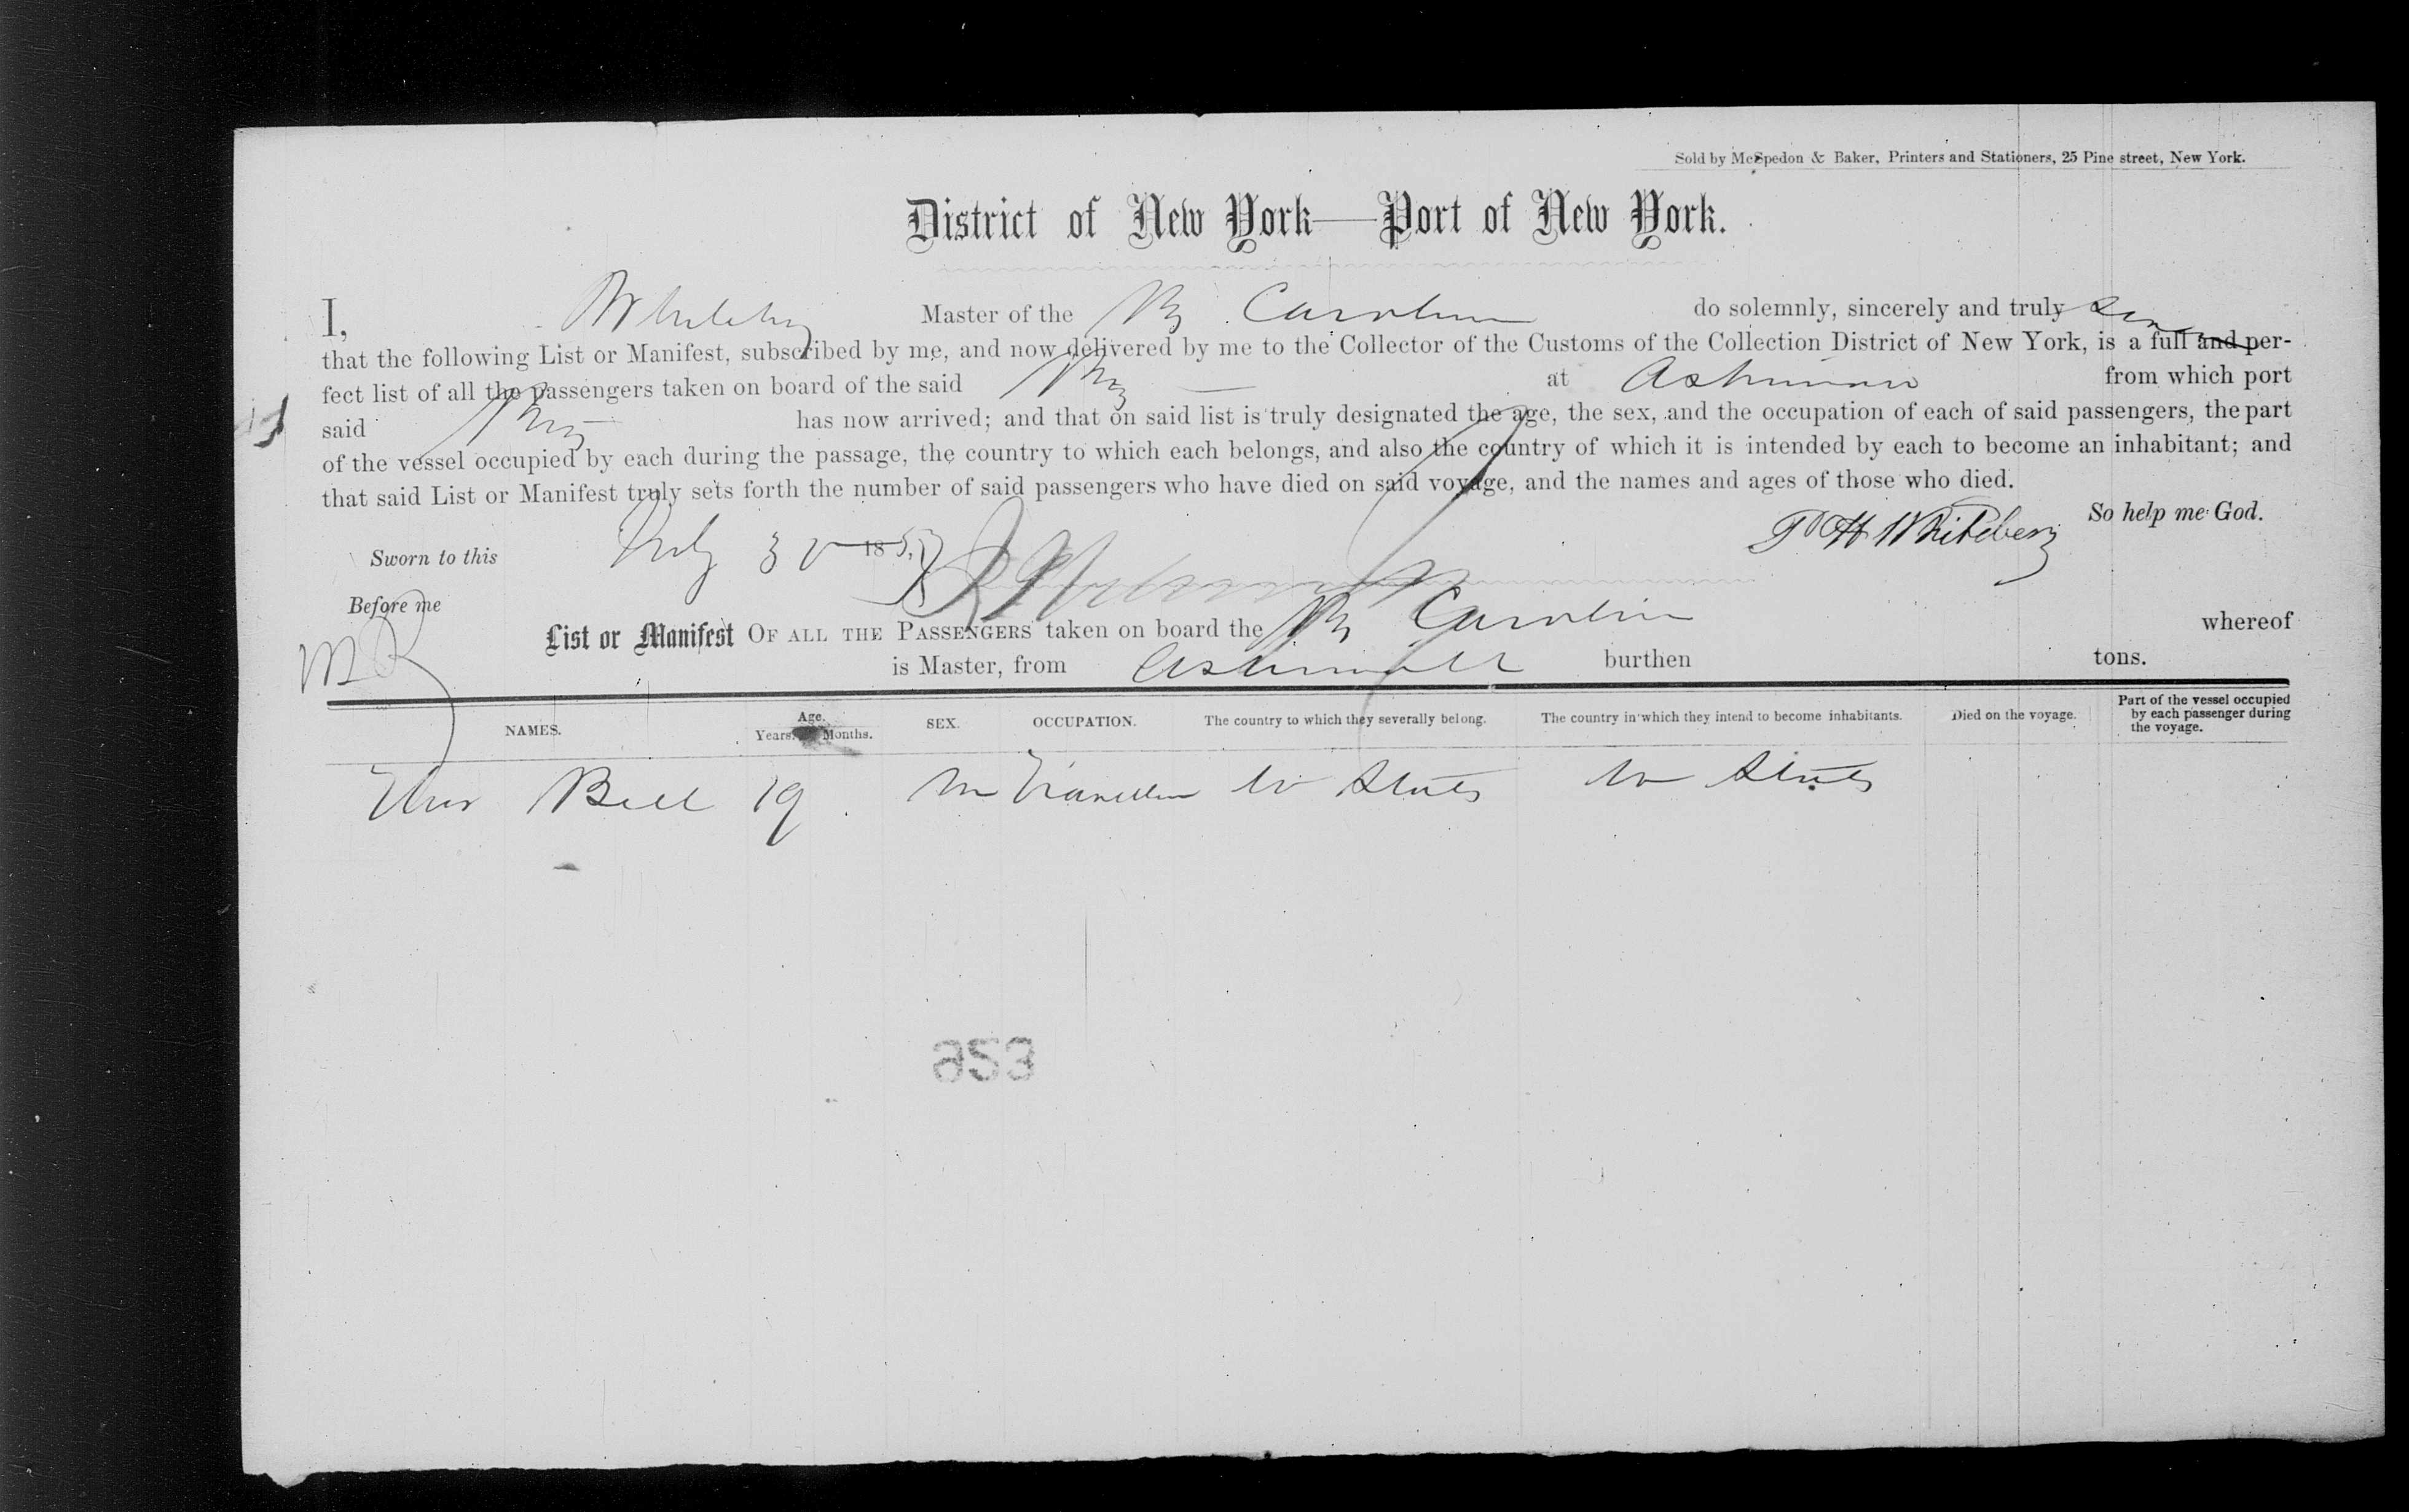 Sold by McSpedon & Baker, Printers and Stationers, 25 Pine street, New York.
District of New York—Port of New York.
I, Master of the Carolin do solemnly, sincerely and truly
that the following List or Manifest, subscribed by me, and now delivered by me to the Collector of the Customs of the Collection District of New York, is a full and per-
fect list of all the passengers taken on board of the said at from which port
said has now arrived; and that on said list is truly designated the age, the sex, and the occupation of each of said passengers, the part
of the vessel occupied by each during the passage, the country to which each belongs, and also the country of which it is intended by each to become an inhabitant; and
that said List or Manifest truly sets forth the number of said passengers who have died on said voyage, and the names and ages of those who died.
So help me God.
Sworn to this July 30 185
Before me
List or Manifest OF ALL THE PASSENGERS taken on board the Carolin whereof
is Master, from burthen tons.
NAMES. Age. Years. Months. SEX. OCCUPATION. The country to which they severally belong. The country in which they intend to become inhabitants. Died on the voyage. Part of the vessel occupied by each passenger during the voyage.
Bell 19 m States States
953